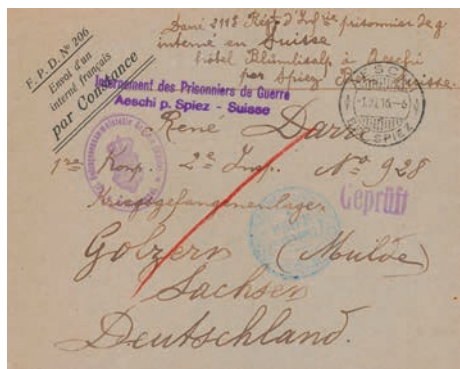 F. P. D. Nº 206
Envoi d'un
interné français
par Constance
Darré 2118 Régt d'Infrie prisonnier de g
interné en Suisse
hôtel Blümlisalp à Aeschi
par Spiez Suisse.
Internement des Prisonniers de Guerre
Aeschi p. Spiez - Suisse
SPIEZ
René Darré
1re Komp. 2e Nº 928
Kriegsgefangenenlager
Geprüft
Golzern (Mulde)
Sachsen
Deutschland.